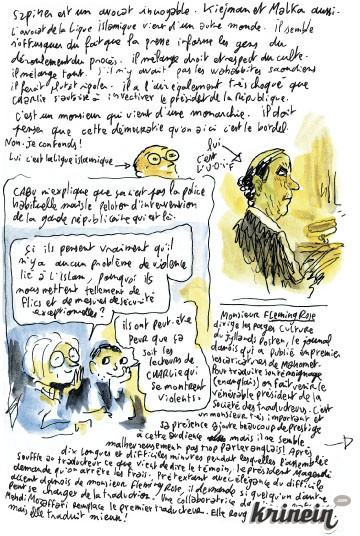 Szpiner est un avocat incroyable. Kiejman et Malka aussi.
L'avocat de la Ligue Islamique vient d'un autre monde. il semble
s'offusquer du fait que la presse informe les gens du
déroulement du procès. il mélange droit et respect du culte.
il mélange tout. s'il n'y avait pas les wahabbites saoudiens
il ferait plutôt rigoler. il a l'air également très choqué que
Charlie s'autorise à invectiver le président de la République.
C'est un monsieur qui vient d'une monarchie. il doit
penser que cette démocratie qu'on a ici c'est le bordel.
Non. je confonds!
Lui c'est la Ligue islamique
lui
c'est
l'U.O.I.F
Cabu m'explique que ça c'est pas la police
habituelle mais le peloton d'intervention
de la garde républicaine qui est là.
Si ils pensent vraiment qu'il
n'y a aucun problème de violence
lié à l'Islam, pourquoi ils
nous mettent tellement de
flics et de mesures de sécurité
exceptionnelles?
ils ont peut-être
peur que ça
soit les
lecteurs de
Charlie qui
se montrent
violents.
Monsieur Fleming Rose
dirige les pages culture
du Jyllands Posten, le journal
danois qui a publié en premier
les caricatures de Mahomet.
Pour traduire son témoignage
(en anglais) on fait venir le
vénérable président de la
Société des traducteurs. C'est
un monsieur très important et
sa présence ajoute beaucoup de prestige
à cette audience mais il ne semble
malheureusement pas trop parler anglais! Après
dix longues et difficiles minutes pendant lesquelles l'assemblée
souffle au traducteur ce que vient de dire le témoin, le président Magendi
demande qu'on arrête les frais. Prétextant avec élégance du difficile
accent danois de monsieur Fleming Rose, il demande si quelqu'un d'autre
peut se charger de la traduction. Une collaboratrice du
Mehdi Mozaffari remplace le premier traducteur. Elle
mais elle traduit mieux!
krinein